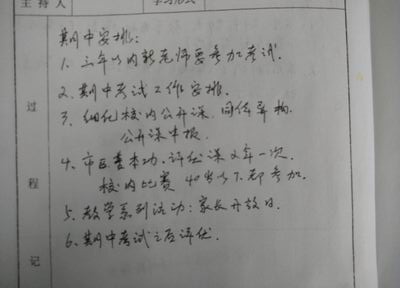 主持人
期中安排：
1. 三年以内新老师要参加考试.
2. 期中考试工作安排.
3. 细化校内公开课, 同伴异构,
公开课申报.
4. 市区基本功, 评优课 2年一次.
校内比赛 40岁以下都参加.
5. 教学系列活动：家长开放日.
6. 期中考试之后评优.
过
程
记